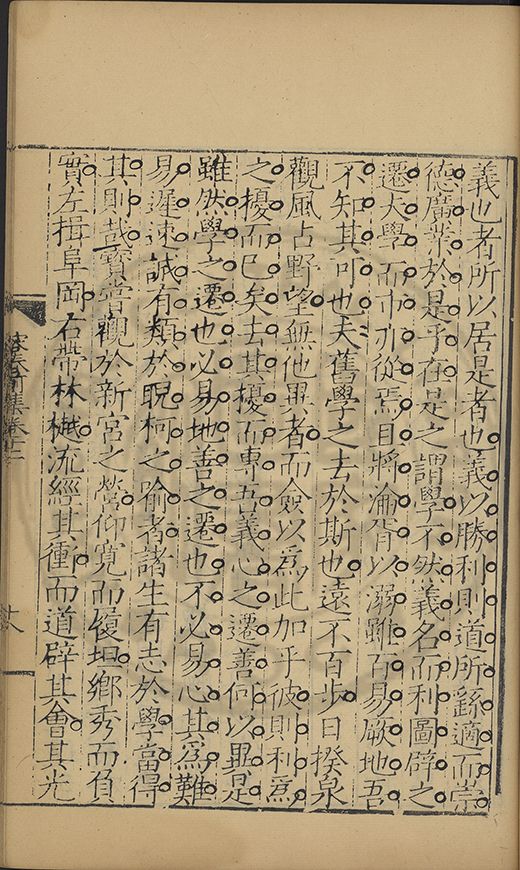 義也者所以居是者也義以勝利則道所繇適而崇
德廣業於是乎在是之謂學不然義名而利圖辟之
遷大學而市亦從焉且將淪胥以溺雖百易厥地吾
不知其可也夫舊學之去於斯也遠不百步日揆泉
觀風占野望無他異者而僉以為此加乎彼則利為
之擾而已矣去其擾而專吾義心之遷善何以異是
雖然學之遷也必易地善之遷也不必易心其為難
易遲速誠有類於睨柯之喻者諸生有志於學當得
其則哉寶嘗觀於新宮之營仰寬而履坦鄉秀而負
實左揖阜岡右帶林樾流經其衝而道辟其會其光
集卷十二